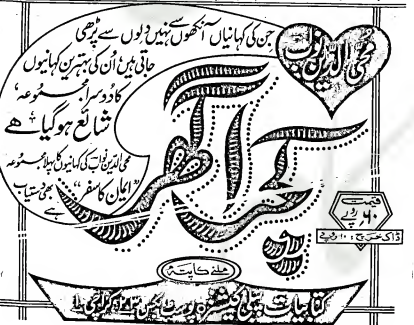 جن کی کہانیاں آنکھوں سے نہیں دلوں سے پڑھی
جاتی ہیں اُن کی بہترین کہانیوں
کا دوسرا مجموعہ،
شائع ہوگیا ہے
محی الدین نواب
کچرا گھر
محی الدین نواب کی کہانیوں کا پہلا مجموعہ
"ایمان کا سفر" بھی دستیاب
ہے
قیمت
۶۰ روپے
ڈاک خرچ : ۱۰ روپے
ملنے کا پتہ
کتابیات پبلی کیشنز پوسٹ بکس ۲۳ کراچی ۱